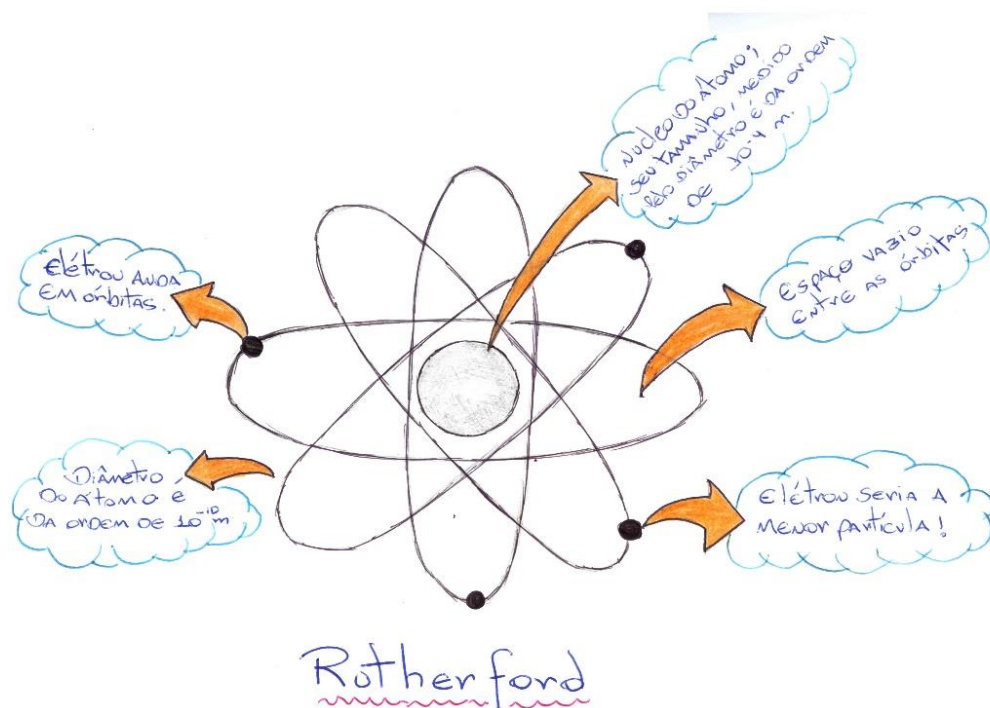 Núcleo do Átomo;
seu tamanho, medido
pelo diâmetro é da ordem
de 10⁻⁴ m.
Elétron anda
em órbitas.
Espaço vazio
entre as órbitas
Diâmetro
do Átomo é
da ordem de 10⁻¹⁰ m
Elétron seria a
menor partícula!
Rutherford